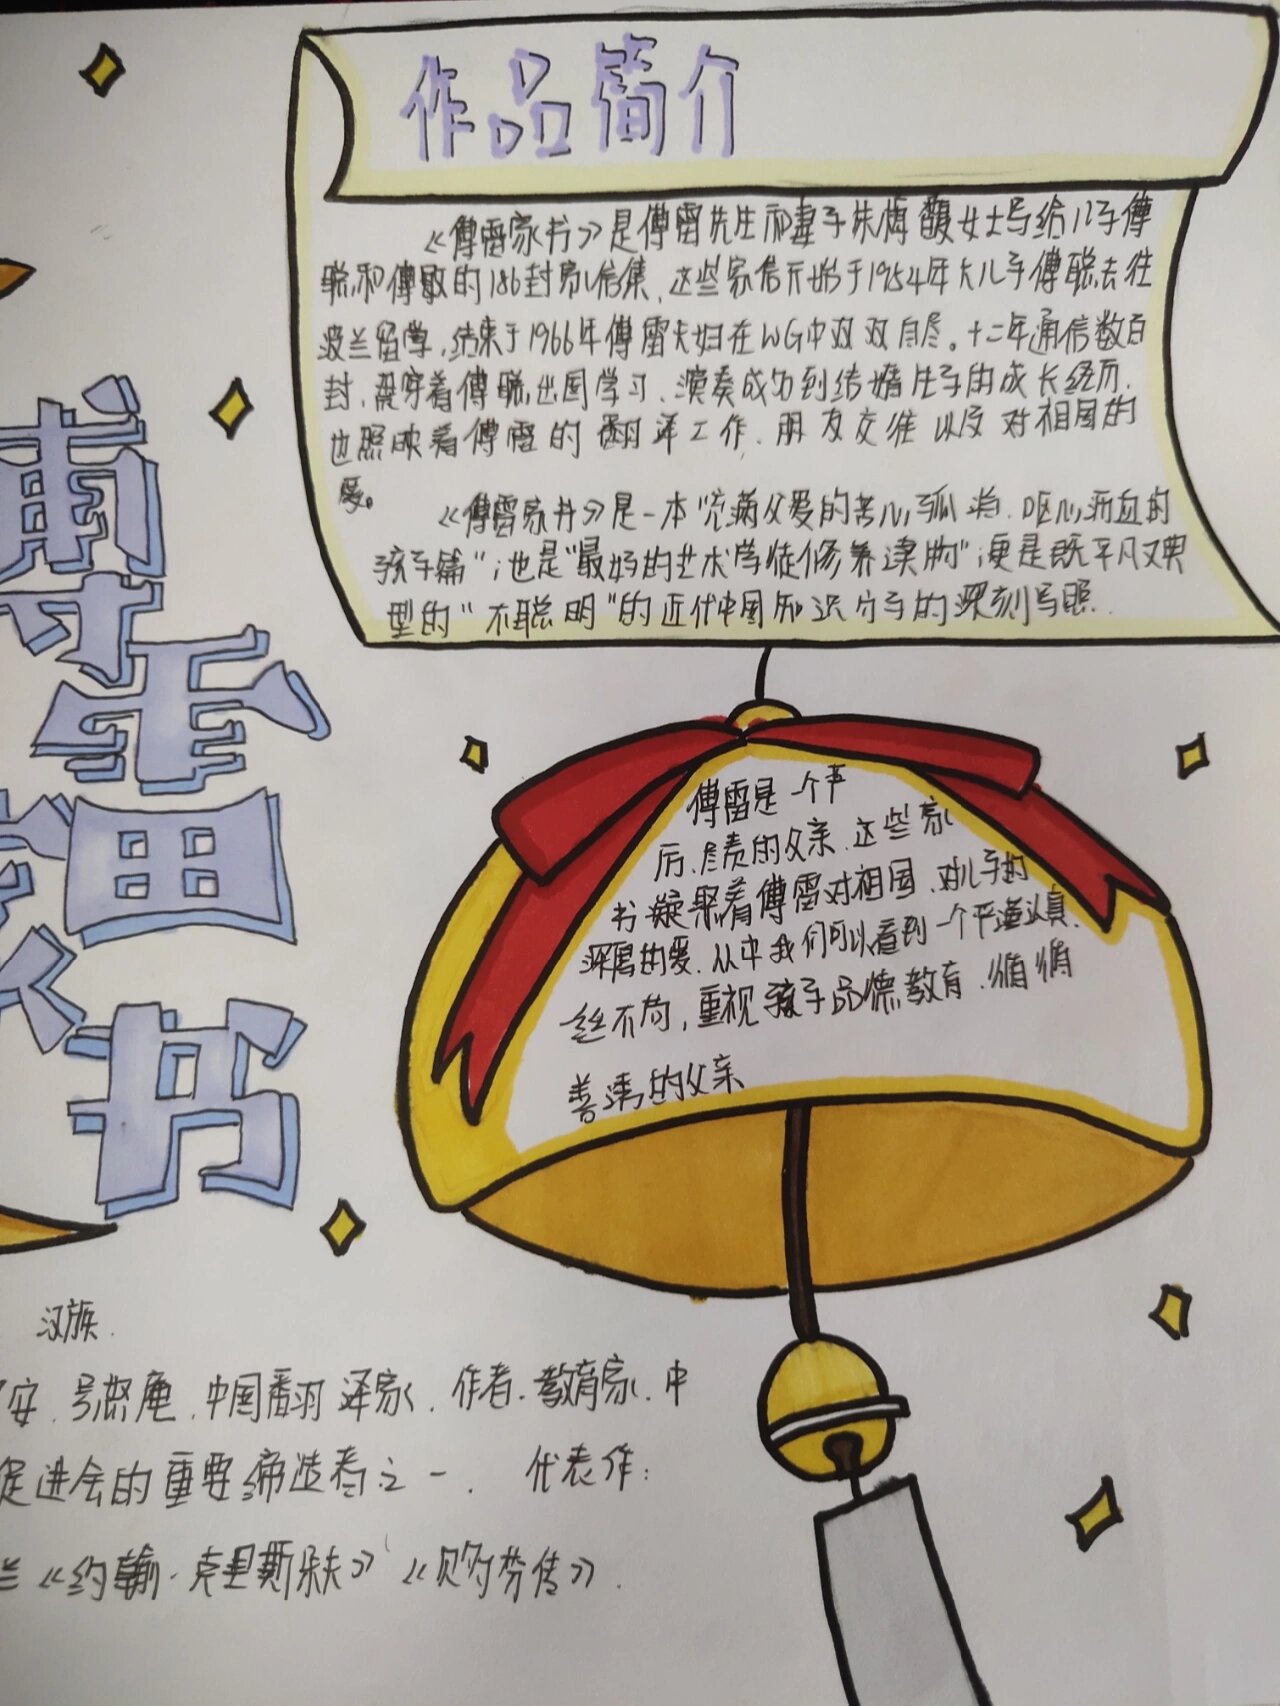 作品简介
《傅雷家书》是傅雷先生和妻子朱梅馥女士写给儿子傅
聪和傅敏的186封家信集，这些家信开始于1954年大儿子傅聪去往
波兰留学，结束于1966年傅雷夫妇在WG中双双自尽。十二年通信数百
封，贯穿着傅聪出国学习、演奏成功到结婚生子的成长经历，
也照映着傅雷的翻译工作、朋友交往以及对祖国的
爱。
《傅雷家书》是一本"充满父爱的苦心孤诣、呕心沥血的
孩子篇"；也是"最好的艺术学徒修养读物"；更是既平凡又典
型的"不聪明"的近代中国知识分子的深刻写照.
傅雷家书
傅雷是一个严
厉、尽责的父亲.这些家
书凝聚着傅雷对祖国、对儿子的
深厚的爱.从中我们可以看到一个严谨认真、
丝不苟，重视孩子品德教育、循循
善诱的父亲
汉族.
安.号怒庵.中国翻译家、作者、教育家、中
促进会的重要缔造者之一. 代表作:
兰《约翰·克里斯朵夫》《贝多芬传》.